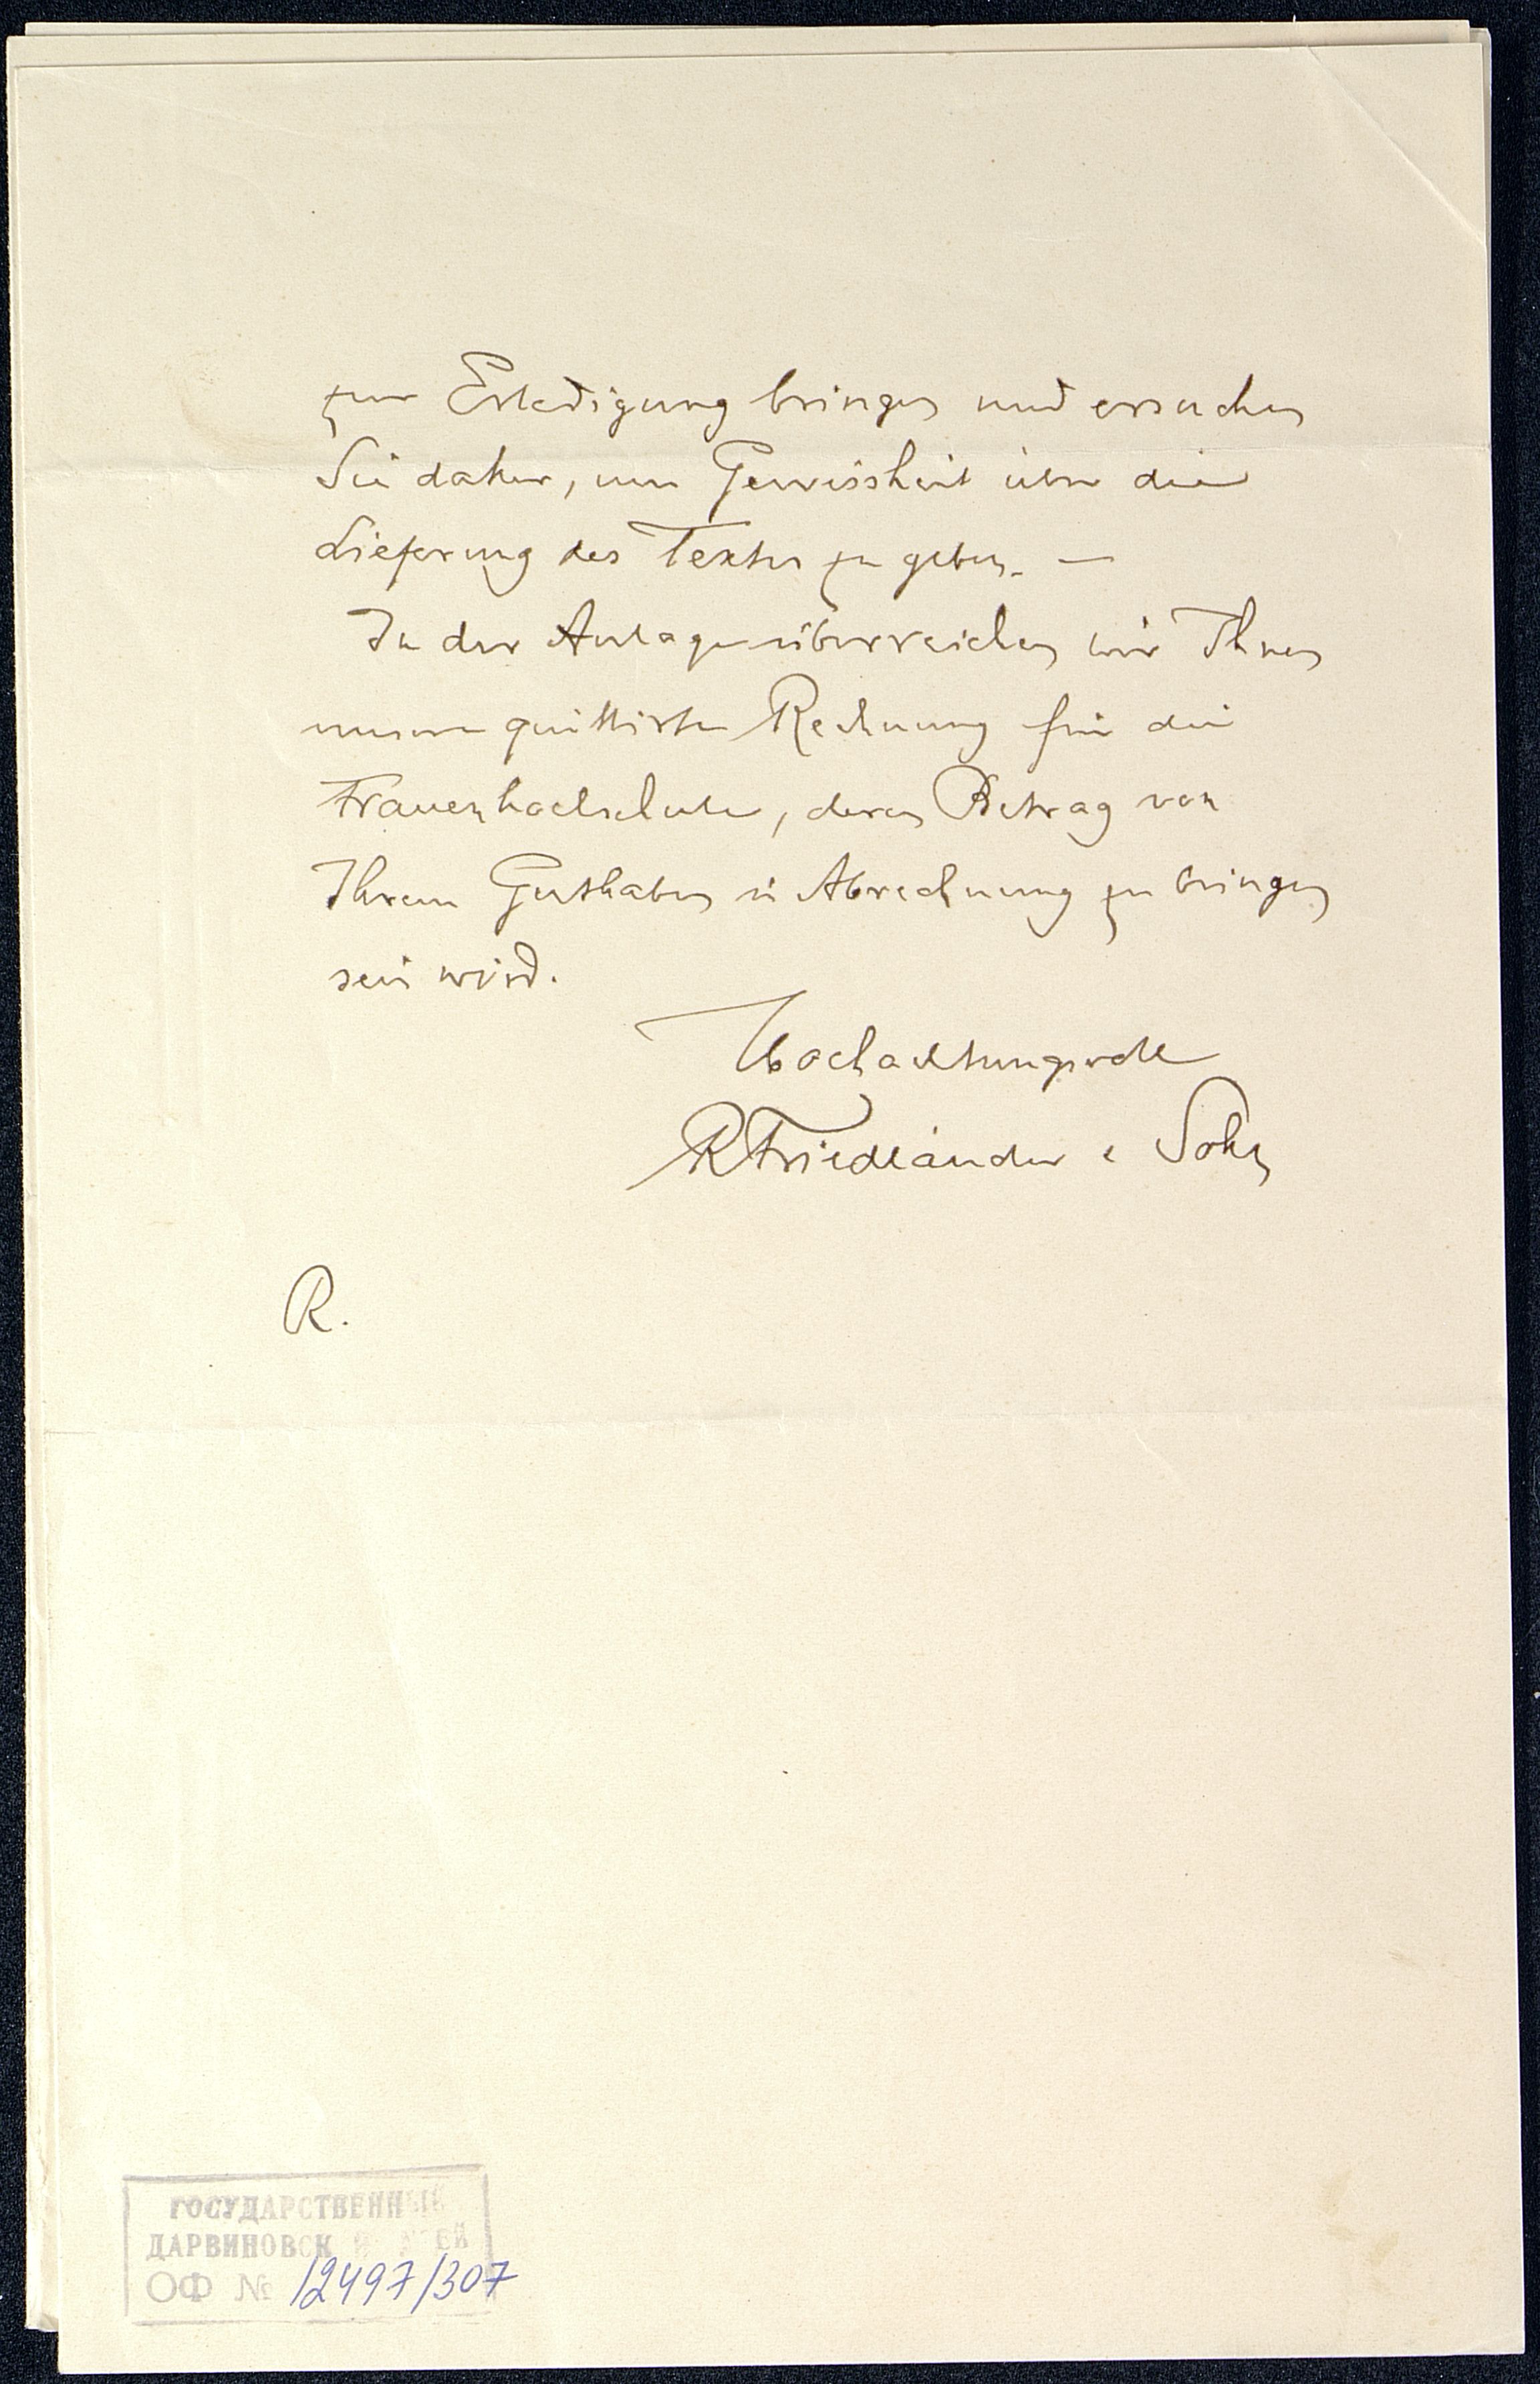 zur Erledigung bringen und ersuchen
Sie daher, uns Gewissheit über die
Lieferung des Textes zu geben. —
In der Anlage überreichen wir Ihnen
unsere quittirte Rechnung für die
Frauenhochschule, deren Betrag von
Ihrem Guthaben in Abrechnung zu bringen
sein wird.
Hochachtungsvoll
R Friedländer & Sohn
R.
ГОСУДАРСТВЕННЫЙ
ДАРВИНОВСКИЙ МУЗЕЙ
ОФ № 12497/307